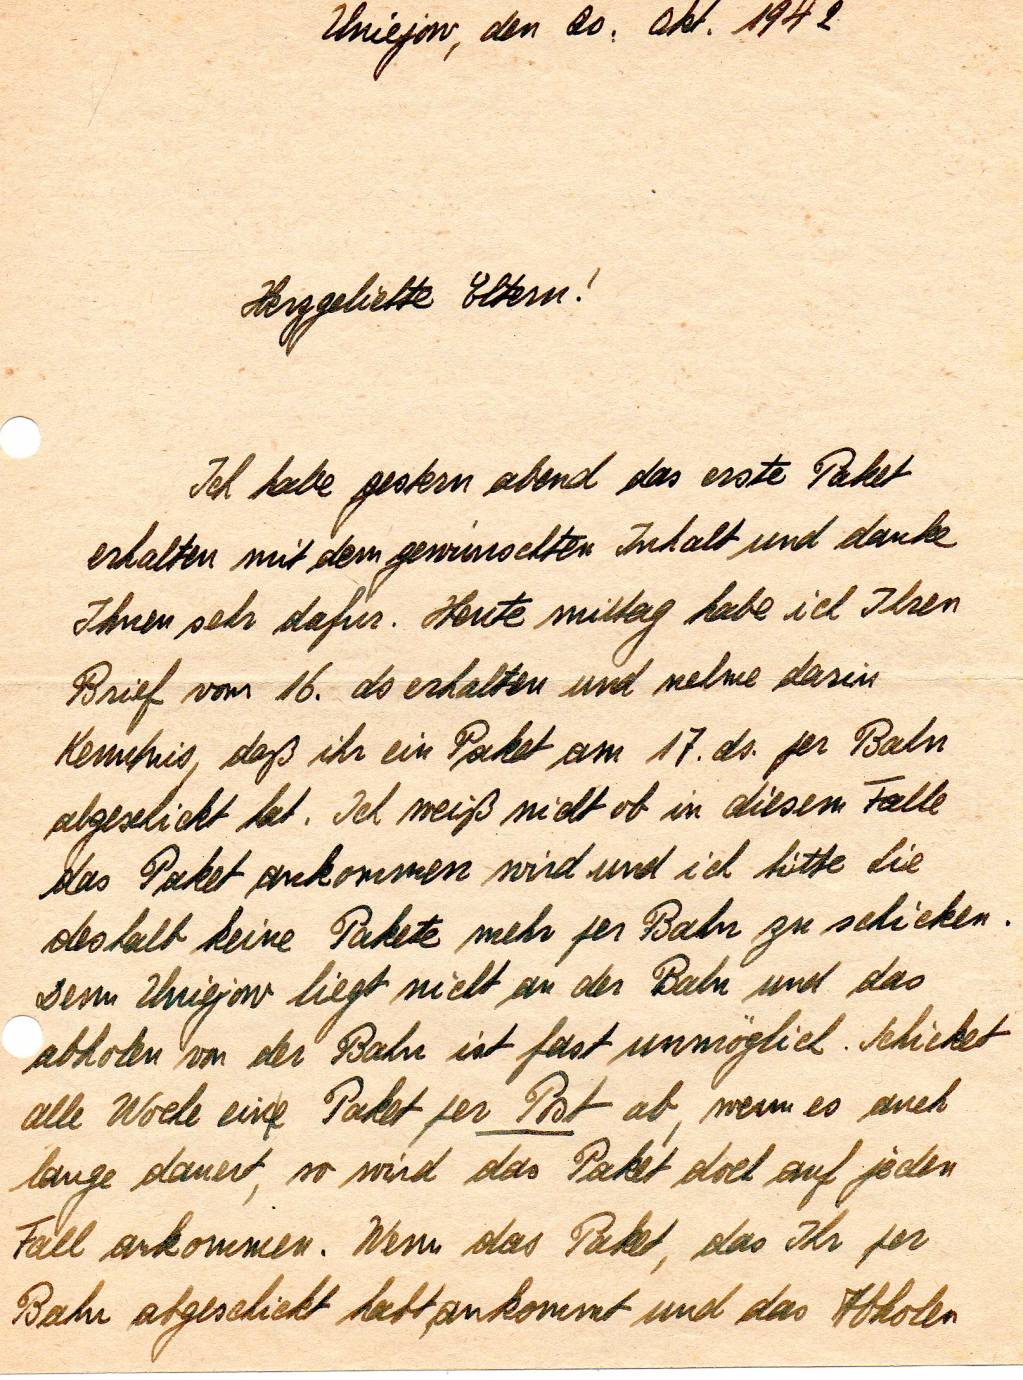 Uniejow, den 20. Okt. 1942
Herzgeliebte Eltern!
Ich habe gestern abend das erste Paket
erhalten mit dem gewünschten Inhalt und danke
Ihnen sehr dafür. Heute mittag habe ich Ihren
Brief vom 16. ds erhalten und nehme darin
Kenntnis, daß ihr ein Paket am 17. ds. per Bahn
abgeschickt hat. Ich weiß nicht ob in diesem Falle
das Paket ankommen wird und ich bitte Sie
deshalb keine Pakete mehr per Bahn zu schicken.
Denn Uniejow liegt nicht an der Bahn und das
abholen von der Bahn ist fast unmöglich. Schicket
alle Woche ein Paket per Post ab, wenn es auch
lange dauert, so wird das Paket doch auf jeden
Fall ankommen. Wenn das Paket, das Ihr per
Bahn abgeschickt habt, ankommt und das Abholen